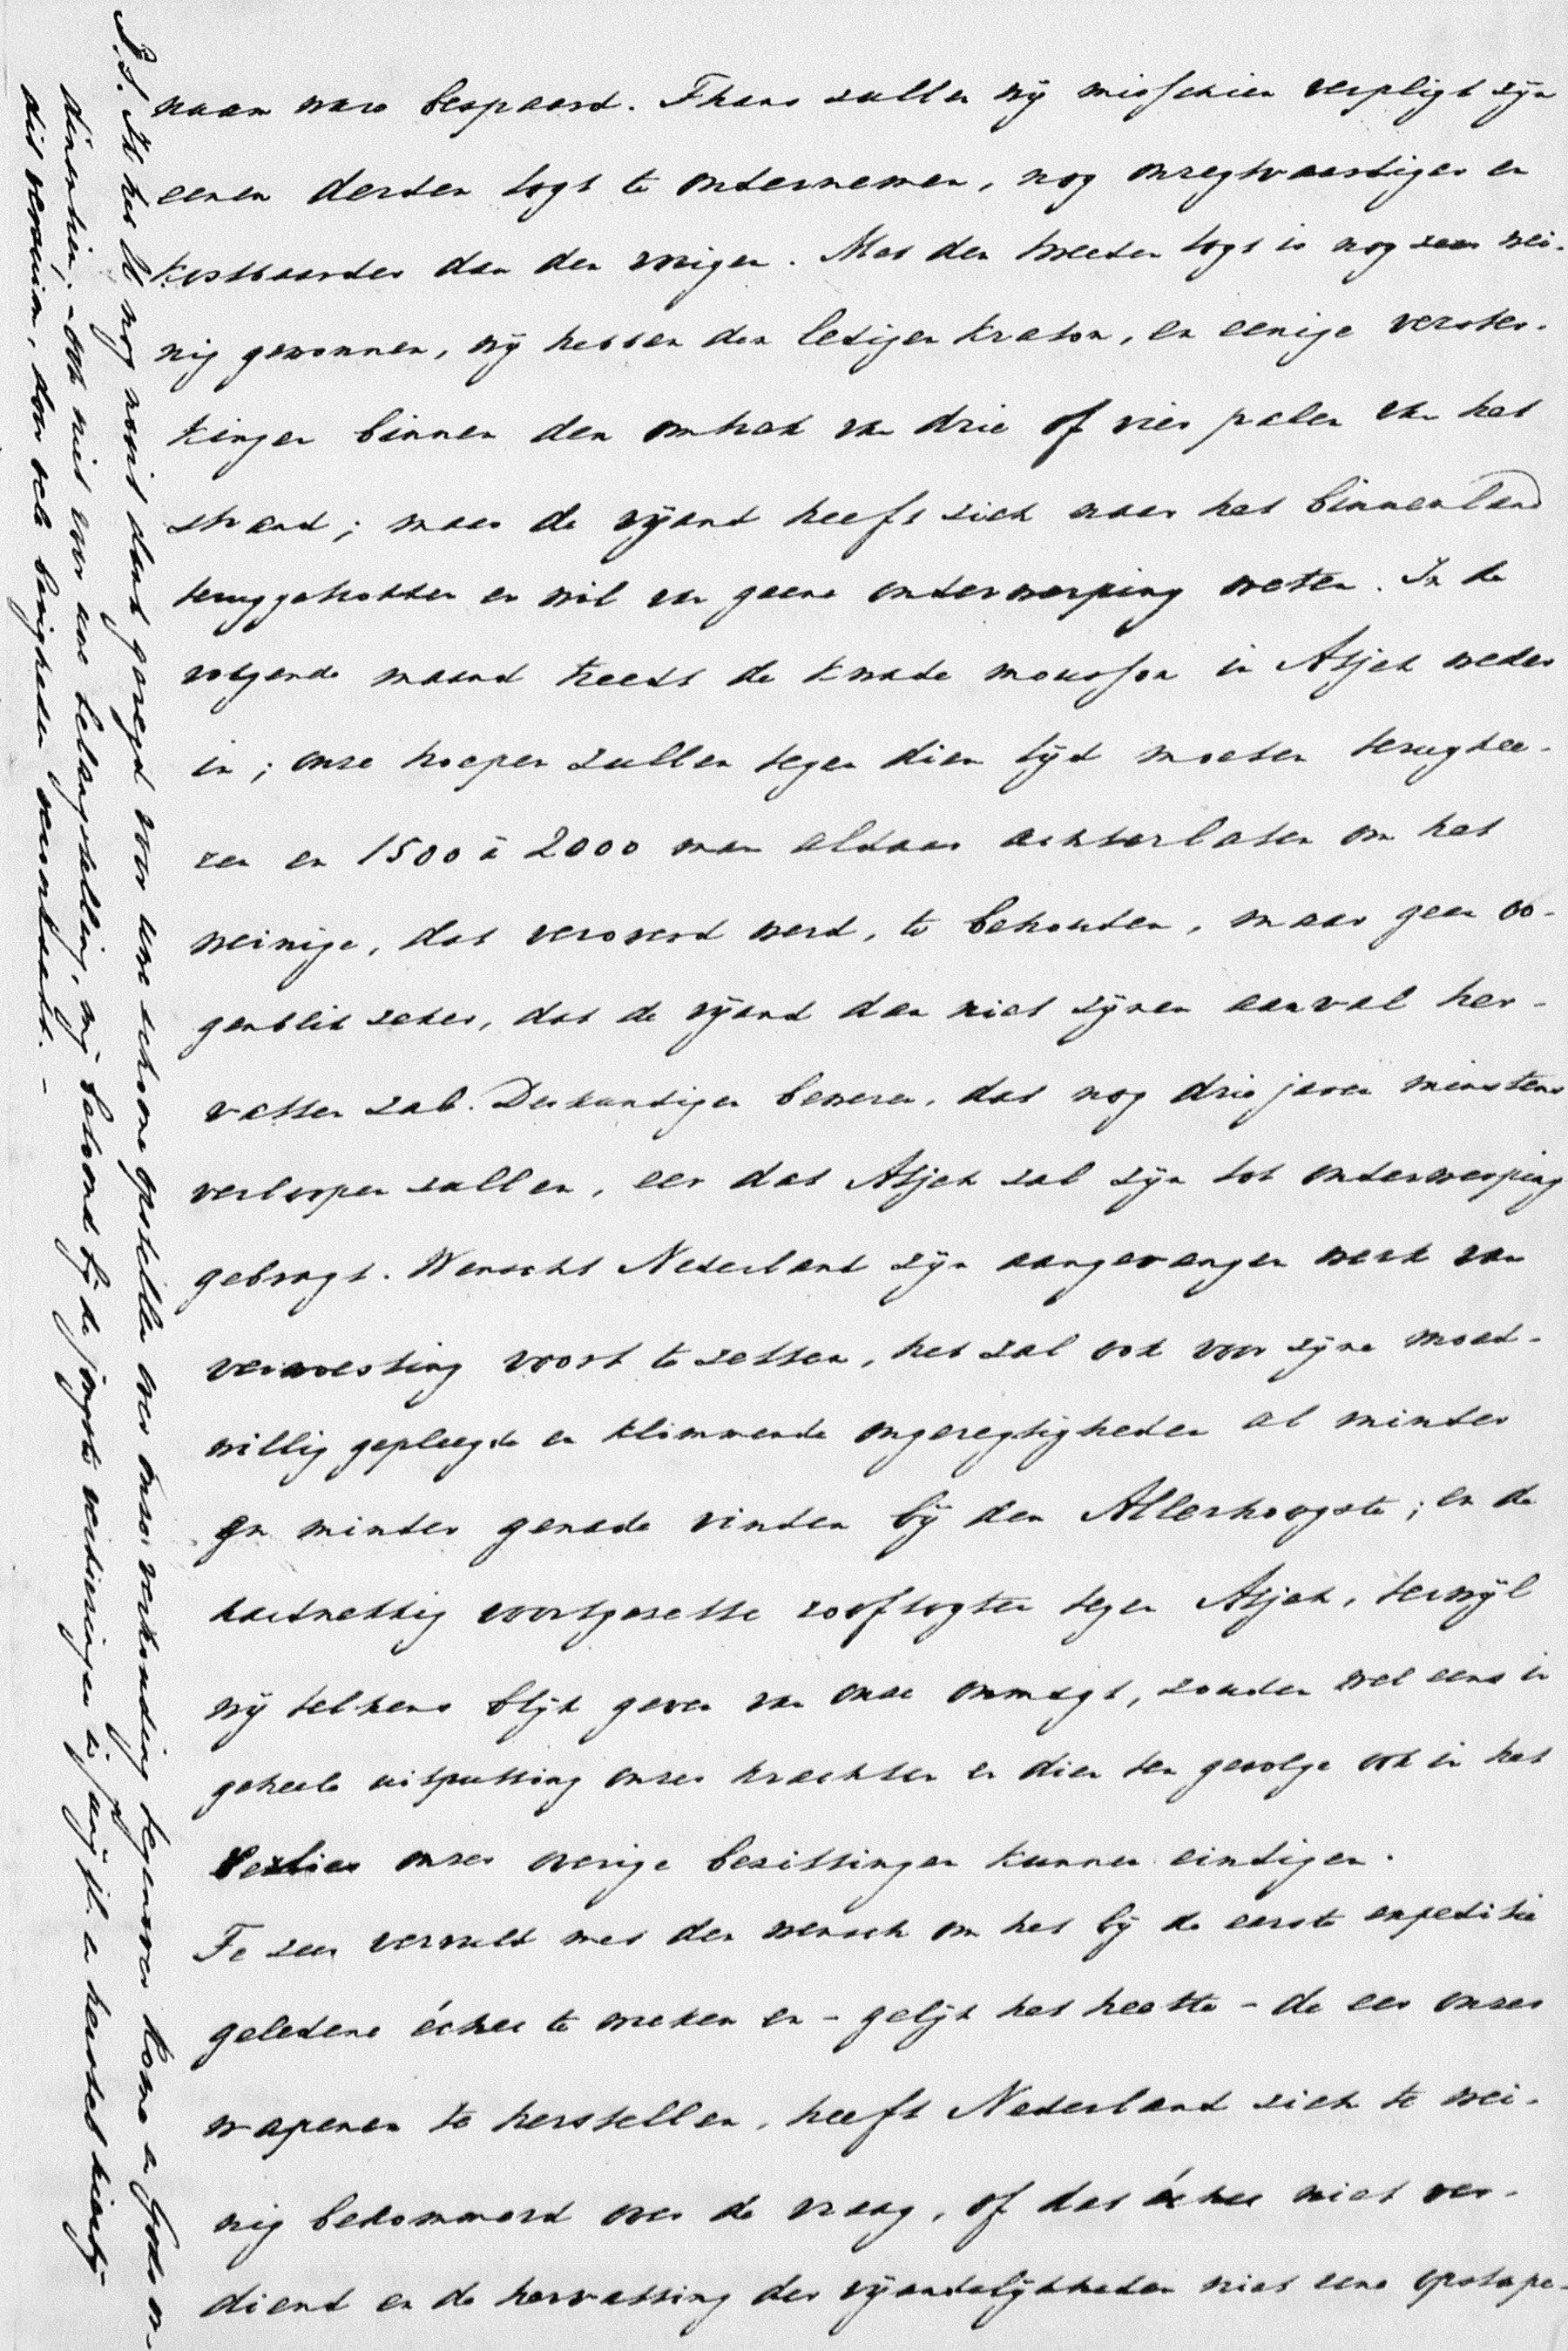 naam ware bespaard. Thans zullen wij misschien verpligt zijn
eenen derden togt te ondernemen, nog onregtvaardiger en
kostbaarder dan den vorigen. Met den tweeden togt is nog zeer wei-
nig gewonnen, wij hebben den ledigen kraton, en eenige verster-
kingen binnen den omtrek van drie of vier palen van het
strand; maar de vijand heeft zich naar het binnenland
teruggetrokken en wil van geene onderwerping weten. In de
volgende maand treedt de kwade mousson in Atjeh weder
in; onze troepen zullen tegen dien tijd moeten terugkee-
ren en 1500 à 2000 man aldaar achterlaten om het
weinige, dat veroverd werd, te behouden, maar geen oo-
genblik zeker, dat de vijand dan niet zijnen aanval her-
vatten zal. Deskundigen beweren, dat nog drie jaren minstens
verloopen zullen, eer dat Atjeh zal zijn tot onderwerping
gebragt. Wenscht Nederland zijn aangevangen werk van
verwoesting voort te zetten, het zal ook voor zijne moed-
willig gepleegde en klimmende ongeregtigheden al minder
en minder genade vinden bij den Allerhoogste; en de
hardnekkig voortgezette rooftogten tegen Atjeh, terwijl
wij telkens blijk geven van onze onmagt, zouden wel eens in
geheele uitputting onzer krachten en dien ten gevolge ook in het
verlies onzer overige bezittingen kunnen eindigen.
Te zeer vervuld met den wensch om het bij de eerste expeditie
geledene échec te wreken en - gelijk het heette - de eer onzer
wapenen te herstellen, heeft Nederland zich te wei-
nig bekommerd over de vraag, of dat échec niet ver-
diend en de hervatting der vijandelijkheden niet eene opstape-
P.S. Ik heb U nog nooit dank gezegd voor uwe schoone opstellen over onze verhouding tegenover Rome en Gods or-
dinantiën; - ook niet voor uwe belangstelling, mij betoond bij de jongste verkiezingen in Junij jl. en herstel hierbij
dit verzuim, door vele bezigheden veroorzaakt. -